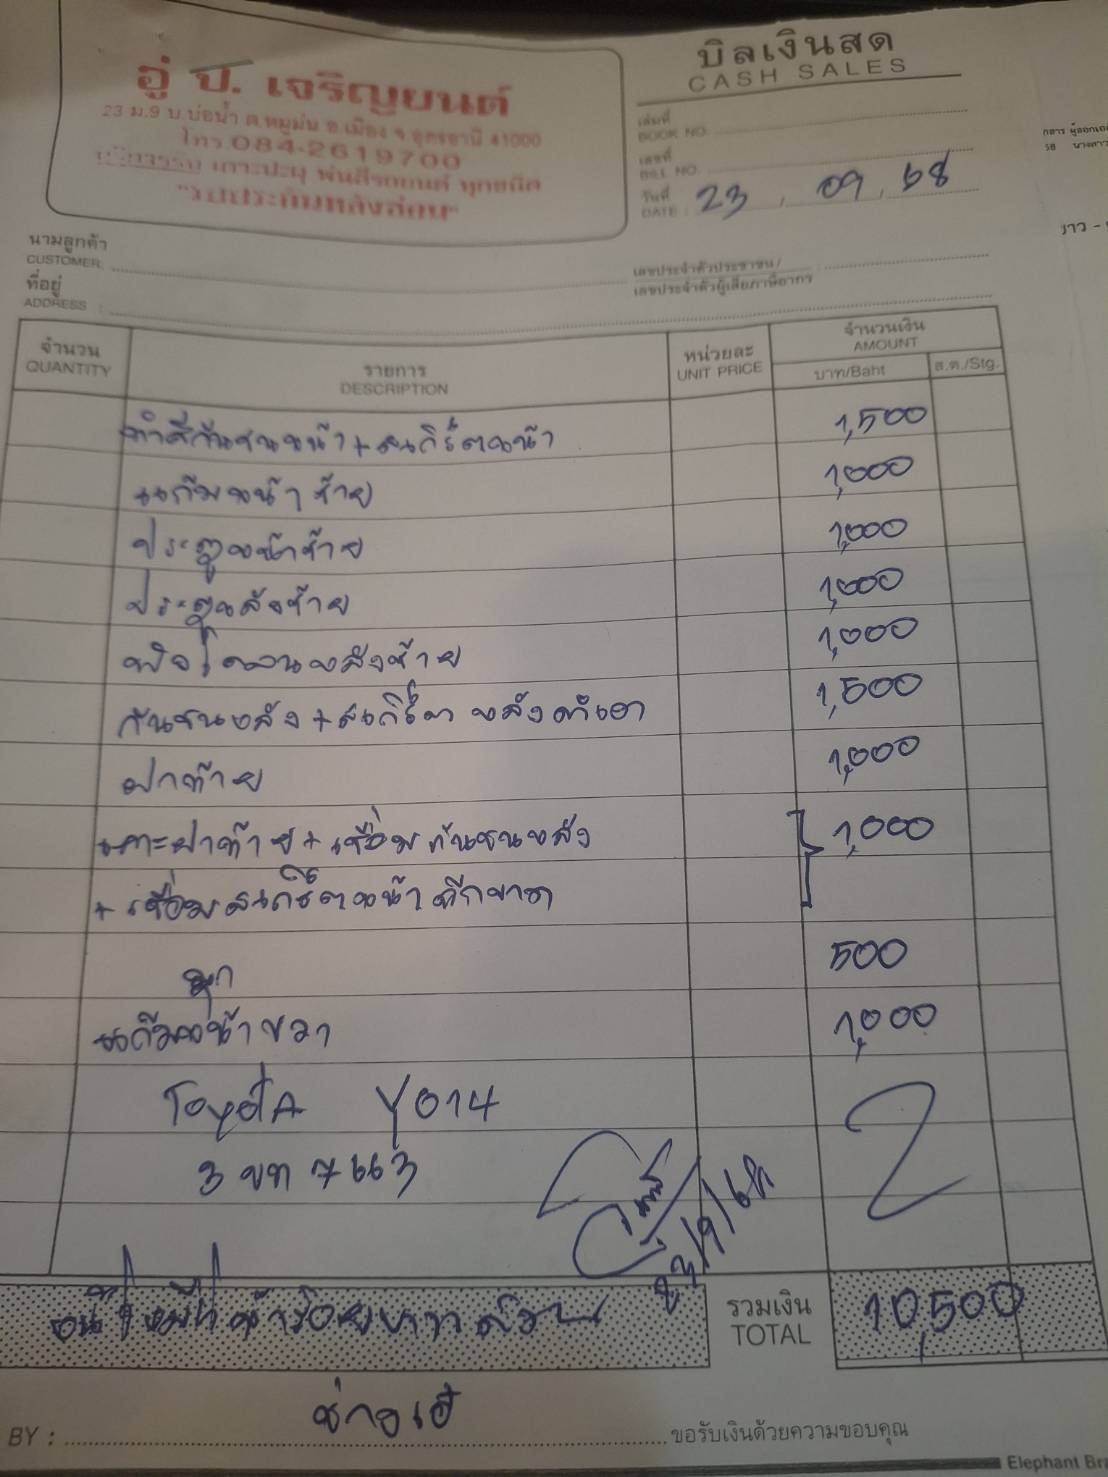 อู่ ป. เจริญยนต์
23 ม.9 บ.บ่อน้ำ ต.หมูม่น อ.เมือง จ.อุดรธานี 41000
โทร.084-2619700
เคาะปะผุ พ่นสีรถยนต์ ทุกชนิด
บิลเงินสด
CASH SALES
เล่มที่
BOOK NO.
เลขที่
BILL NO.
วันที่
DATE : 23 / 09 / 68
นามลูกค้า
CUSTOMER
ที่อยู่
ADDRESS :
เลขประจำตัวประชาชน/
เลขประจำตัวผู้เสียภาษีอากร
จำนวน
QUANTITY
รายการ
DESCRIPTION
หน่วยละ
UNIT PRICE
จำนวนเงิน
AMOUNT
บาท/Baht
ส.ต./Stg.
ทำสีกันชนหน้า+สเกิร์ตหน้า 1,500
แก้มหน้าซ้าย 1,000
ประตูหน้าซ้าย 1,000
ประตูหลังซ้าย 1,000
หลังซ้าย 1,000
กันชนหลัง+สเกิร์ต หลังดำเงา 1,500
ฝาท้าย 1,000
เคาะฝาท้าย+เชื่อมกันชนหลัง 1,000
+เชื่อมสเกิร์ตหน้าฉีกขาด
500
แก้มหน้าขวา 1,000
Toyota
3 ขท 7663
23/9/68
รวมเงิน
TOTAL
10,500
BY :
ขอรับเงินด้วยความขอบคุณ
Elephant